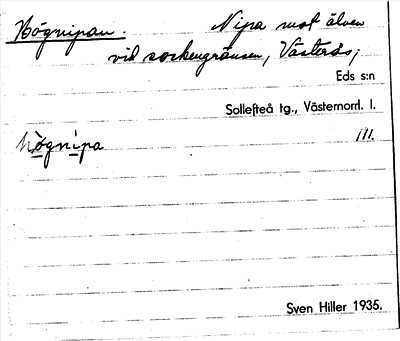 Högnipan. Nipa mot älven
vid sockengränsen, Västerås;
Eds s:n
Sollefteå tg., Västernorrl. l.
högnipa III.
Sven Hiller 1935.